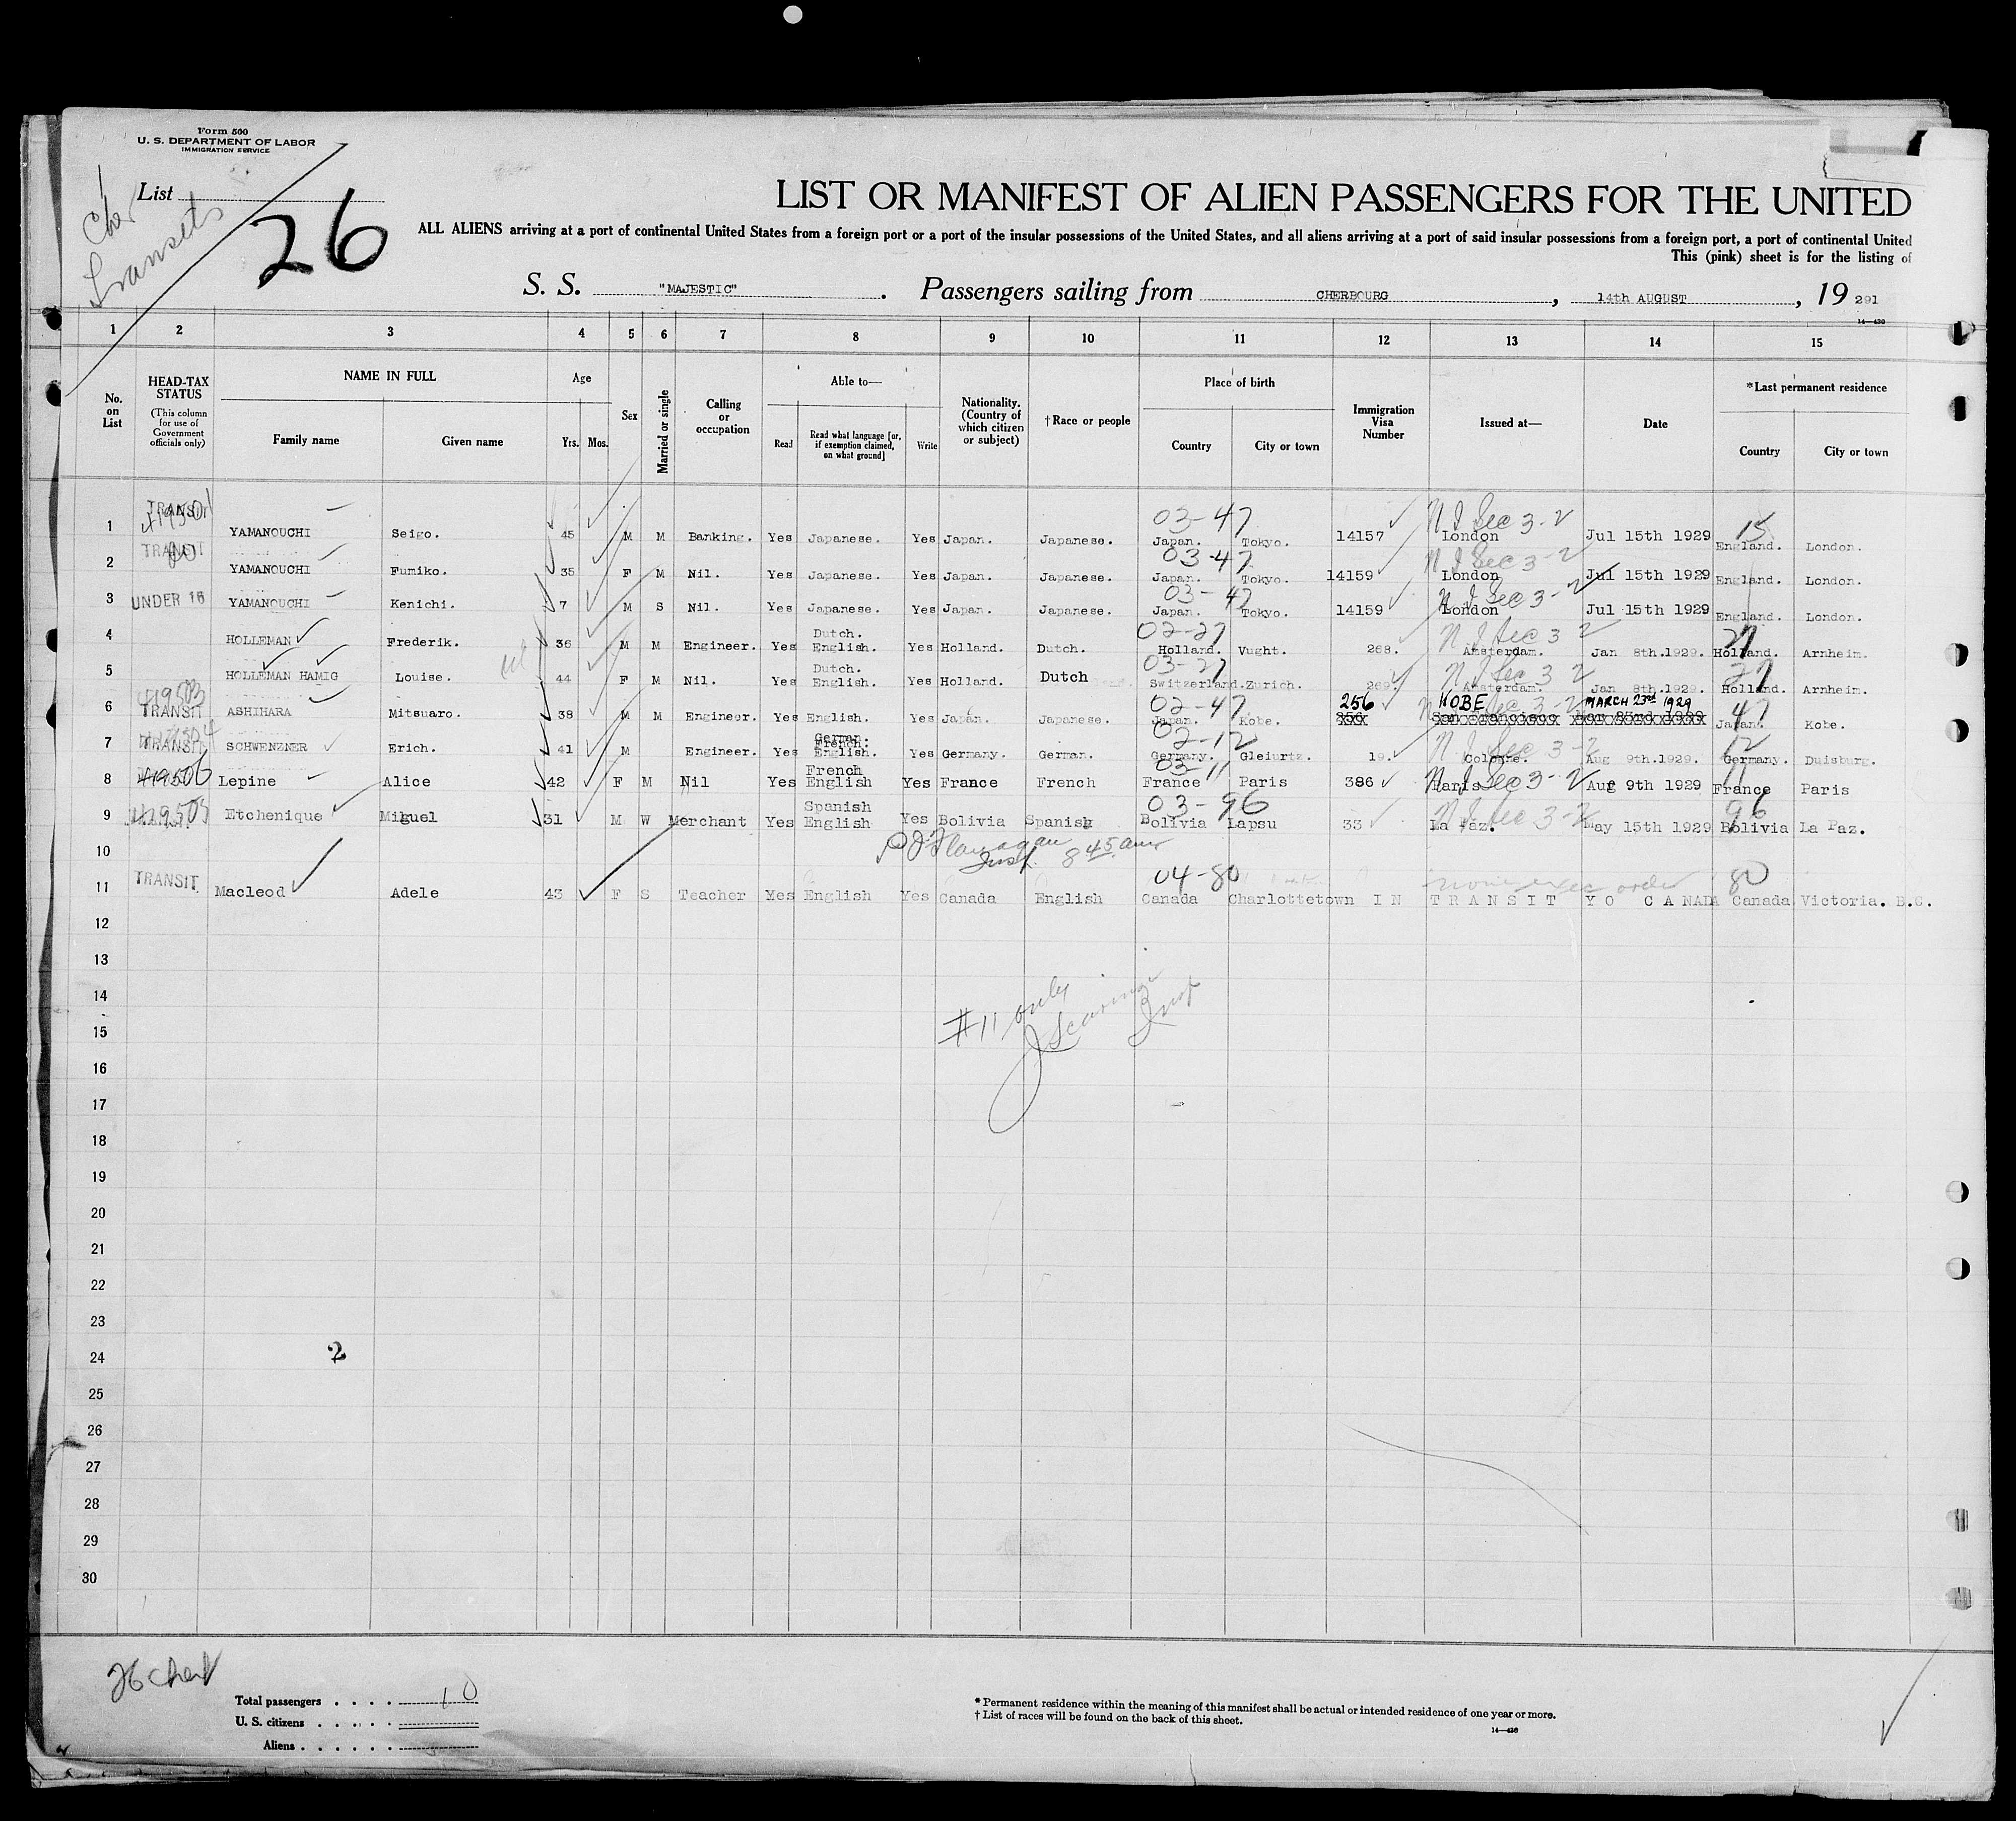 Form 500
U. S. DEPARTMENT OF LABOR
IMMIGRATION SERVICE
List
Transits
26
LIST OR MANIFEST OF ALIEN PASSENGERS FOR THE UNITED
ALL ALIENS arriving at a port of continental United States from a foreign port or a port of the insular possessions of the United States, and all aliens arriving at a port of said insular possessions from a foreign port, a port of continental United
This (pink) sheet is for the listing of
S. S. "MAJESTIC". Passengers sailing from CHERBOURG, 14th AUGUST, 19 291
14—430
1 2 3 4 5 6 7 8 9 10 11 12 13 14 15
No. on List
HEAD-TAX STATUS
(This column for use of Government officials only)
NAME IN FULL
Family name Given name
Age
Yrs. Mos.
Sex
Married or single
Calling or occupation
Able to—
Read
Read what language [or, if exemption claimed, on what ground]
Write
Nationality. (Country of which citizen or subject)
†Race or people
Place of birth
Country City or town
Immigration Visa Number
Issued at—
Date
*Last permanent residence
Country City or town
TRANSIT 03-47 N I Sec 3-2 15
1 YAMANOUCHI Seigo. 45 M M Banking. Yes Japanese. Yes Japan. Japanese. Japan. Tokyo. 14157 London Jul 15th 1929 England. London.
TRANSIT 03-47 N I Sec 3-2
2 YAMANOUCHI Fumiko. 35 F M Nil. Yes Japanese. Yes Japan. Japanese. Japan. Tokyo. 14159 London Jul 15th 1929 England. London.
03-47 N I Sec 3-2
3 UNDER 16 YAMANOUCHI Kenichi. 7 M S Nil. Yes Japanese. Yes Japan. Japanese. Japan. Tokyo. 14159 London Jul 15th 1929 England. London.
02-27 N I Sec 3 2 27
4 HOLLEMAN Frederik. 36 M M Engineer. Yes Dutch. English. Yes Holland. Dutch. Holland. Vught. 268. Amsterdam. Jan 8th.1929. Holland. Arnheim.
03-27 N I Sec 3 2 27
5 HOLLEMAN HAMIG Louise. 44 F M Nil. Yes Dutch. English. Yes Holland. Dutch Switzerland. Zurich. 269. Amsterdam. Jan 8th.1929. Holland. Arnheim.
419503 02-47 256 KOBE MARCH 23rd 1929 47
6 TRANSIT ASHIHARA Mitsuaro. 38 M M Engineer. Yes English. Yes Japan. Japanese. Japan. Kobe. Japan. Kobe.
419504 02-12 N I Sec 3-2 12
7 TRANSIT SCHWENZNER Erich. 41 M Engineer. Yes German. French. English. Yes Germany. German. Germany. Gleiurtz. 19. Cologne. Aug 9th.1929. Germany. Duisburg.
419506 03-11 N I Sec 3-2 11
8 Lepine Alice 42 F M Nil Yes French English Yes France French France Paris 386 Paris Aug 9th 1929 France Paris
03-96 N I Sec 3-2 96
9 Etchenique Miguel 31 M W Merchant Yes Spanish English Yes Bolivia Spanish Bolivia Lapsu 33 La Paz. May 15th 1929 Bolivia La Paz.
10 Flanagan Insp. 8 45 am
TRANSIT 04-80 exec order 80
11 Macleod Adele 43 F S Teacher Yes English Yes Canada English Canada Charlottetown IN TRANSIT YO CANADA Canada Victoria. B.C.
12
13
14
#11 only
15
Insp
16
17
18
19
20
21
22
23
2
24
25
26
27
28
29
30
26 Cher
Total passengers 10
U. S. citizens
Aliens
* Permanent residence within the meaning of this manifest shall be actual or intended residence of one year or more.
† List of races will be found on the back of this sheet.
14—430